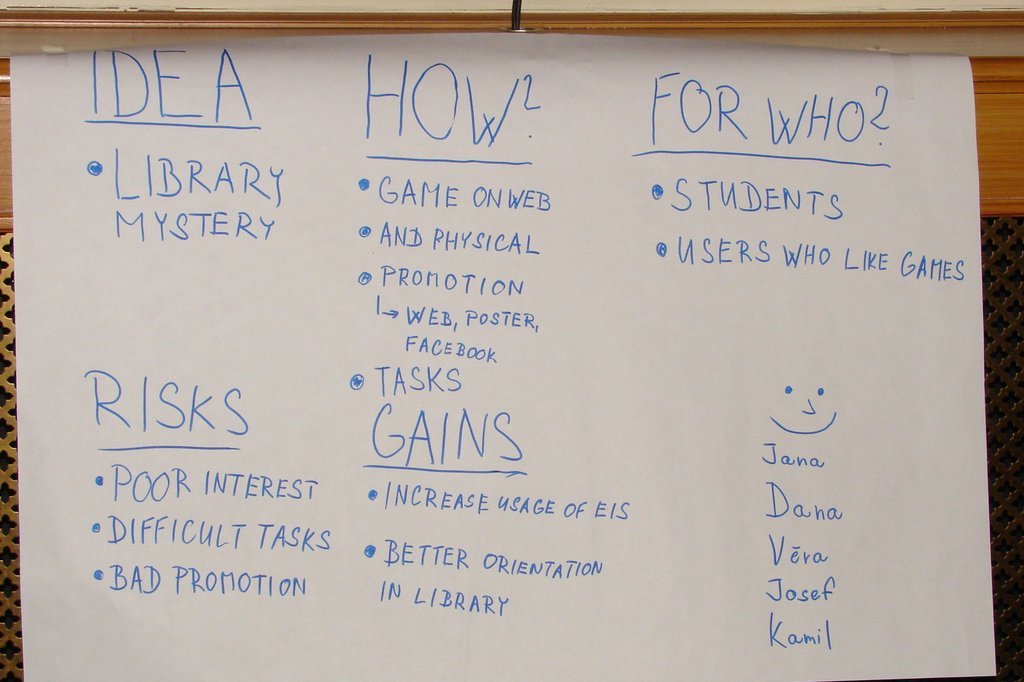 IDEA
• LIBRARY
MYSTERY
HOW?
• GAME ON WEB
• AND PHYSICAL
• PROMOTION
↳ WEB, POSTER,
FACEBOOK
• TASKS
FOR WHO?
• STUDENTS
• USERS WHO LIKE GAMES
RISKS
• POOR INTEREST
• DIFFICULT TASKS
• BAD PROMOTION
GAINS
• INCREASE USAGE OF EIS
• BETTER ORIENTATION
IN LIBRARY
Jana
Dana
Věra
Josef
Kamil